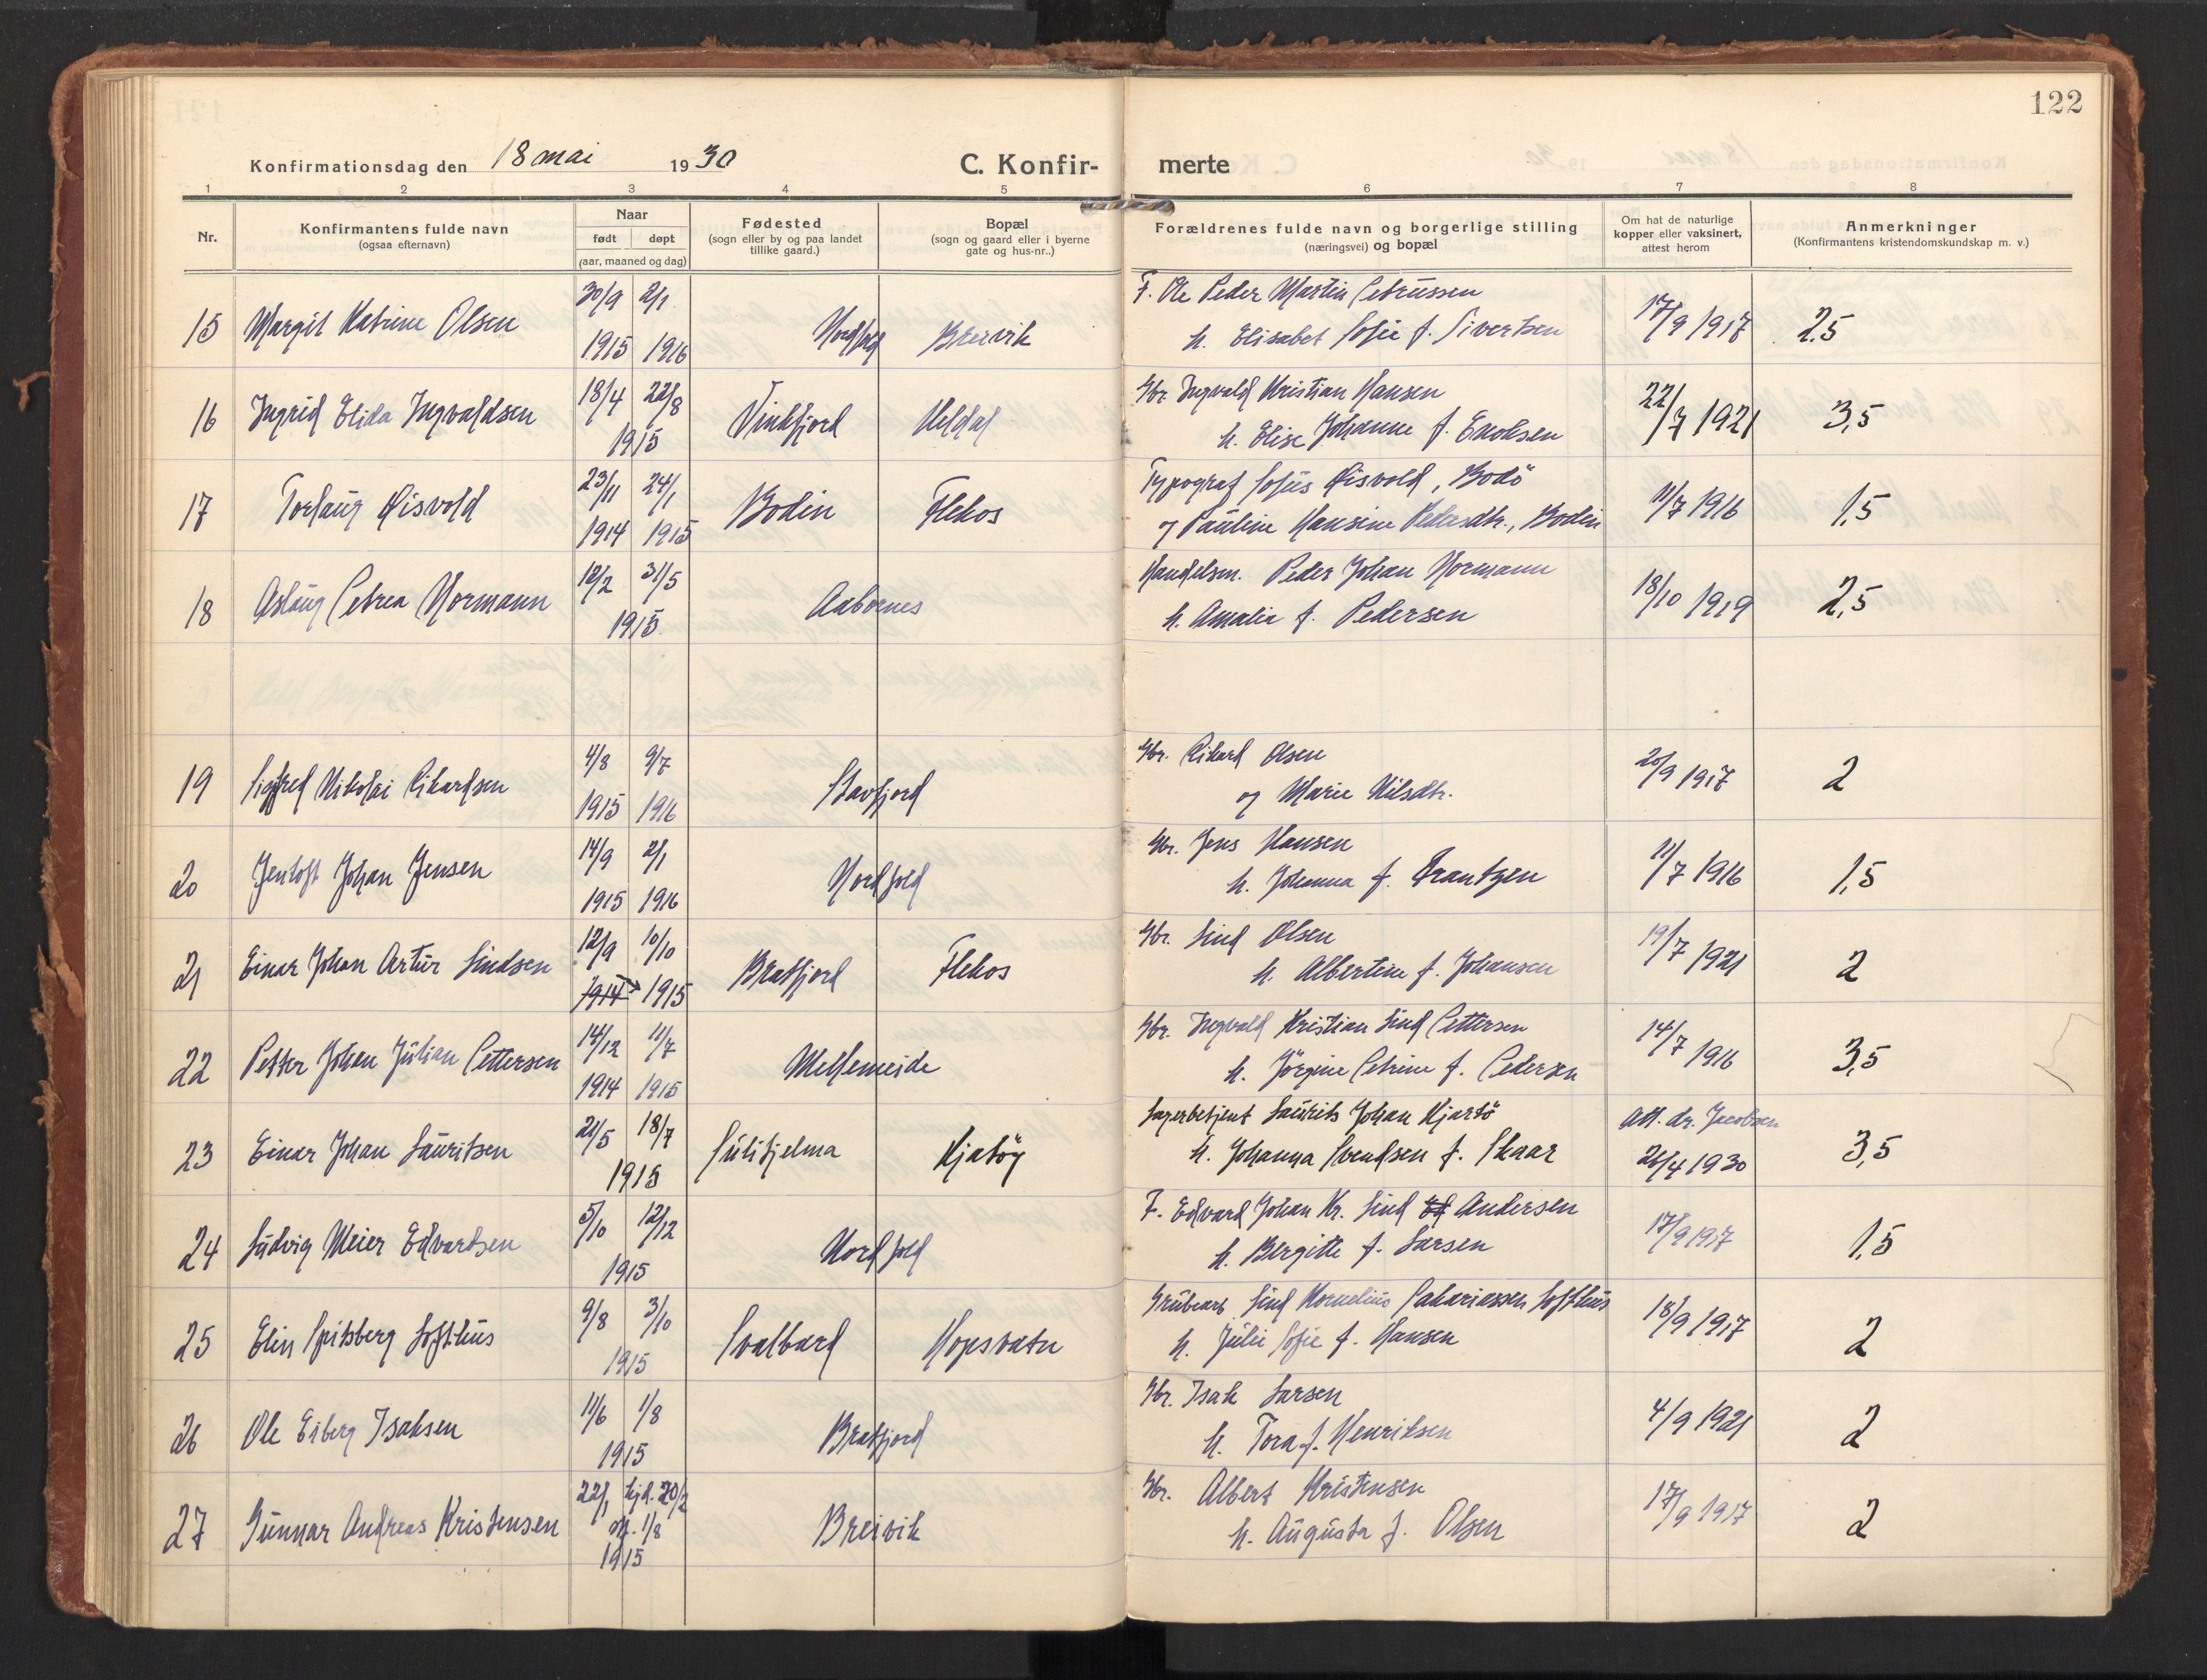 122
Konfirmationsdag den 18 mai 1930
C. Konfir-
merte
1 2 3 4 5 6 7 8
Nr.
Konfirmantens fulde navn
(ogsaa efternavn)
Naar
født døpt
(aar, maaned og dag)
Fødested
(sogn eller by og paa landet
tillike gaard.)
Bopæl
(sogn og gaard eller i byerne
gate og hus-nr..)
Forældrenes fulde navn og borgerlige stilling
(næringsvei) og bopæl
Om hat de naturlige
kopper eller vaksinert,
attest herom
Anmerkninger
(Konfirmantens kristendomskundskap m. v.)
30/9 2/1 F. Ole Peder Martin Petrussen
15 Margit Katrine Olsen Nordfold Breivik 17/9 1917 2,5
1915 1916 h. Elisabet Sofie f. Sivertsen
18/4 22/8 Gbr. Ingvald Kristian Hansen
16 Ingrid Elida Ingvaldsen Vinkfjord Heldal 22/7 1921 3,5
1915 h. Elise Johanne f. Enoksen
23/11 24/1 Typograf Sofus Øisvold, Bodö
17 Torlaug Øisvold Bodin Flekos 11/7 1916 1,5
1914 1915 og Pauline Hansine Pedersdtr., Bodin
12/2 31/5 Handelsm. Peder Johan Normann
18 Aslaug Petrea Normann Aabornes 18/10 1919 2,5
1915 h. Amalie f. Pedersen
4/8 9/7 Gbr. Rikard Olsen
19 Sigfred Nikolai Rikardsen Stavfjord 20/9 1917 2
1915 1916 og Marie Nilsdtr.
14/9 2/1 Gbr. Jens Hansen
20 Jentoft Johan Jensen Nordfold 11/7 1916 1,5
1915 1916 h. Johanna f. Frantzen
12/9 10/10 Gbr. Lind Olsen
21 Einar Johan Artur Lindsen Bratfjord Flekos 19/7 1921 2
1914 1915 h. Albertine f. Johansen
14/12 11/7 Gbr. Ingvald Kristian Lind Pettersen
22 Petter Johan Julian Pettersen Mellemeide 14/7 1916 3,5
1914 1915 h. Jörgine Petrine f. Pedersen
21/5 18/7 Lagerbetjent Laurits Johan Kjartö Att. dr. Jacobsen
23 Einar Johan Lauritsen Sulitjelma Kjatöy 26/4 1930 3,5
1915 h. Johanna Svendsen f. Skaar
5/10 12/12 F. Edvard Johan Kr. Lind Ed Andersen
24 Ludvig Meier Edvardsen Nordfold 17/9 1917 1,5
1915 h. Bergitte f. Larsen
9/8 3/10 Grubearb Lind Kornelius Sakariassen Lofthus
25 Elin Spitsberg Lofthus Svalbard Hopsvatn 18/9 1917 2
1915 h. Julie Sofie f. Hansen
11/6 1/8 Gbr. Isak Larsen
26 Ole Eiberg Isaksen Bratfjord 4/9 1921 2
1915 h. Tora f. Henriksen
22/1 hjd. 20/2 Gbr. Albert Kristensen
27 Gunnar Andreas Kristensen 1/8 Breivik 17/9 1917 2
1915 h. Augusta f. Olsen